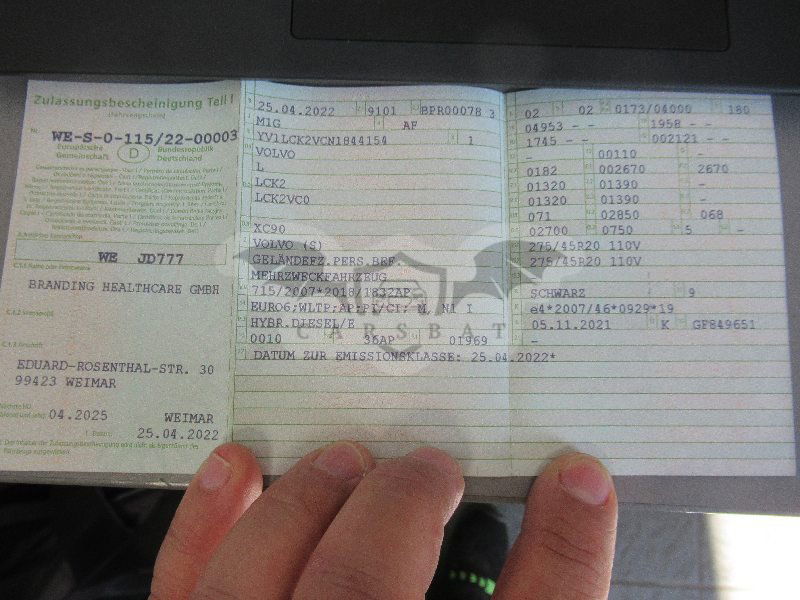 Zulassungsbescheinigung Teil I
(Fahrzeugschein)
Nr. WE-S-O-115/22-00003
Europäische Gemeinschaft D Bundesrepublik Deutschland
WE JD777
BRANDING HEALTHCARE GMBH
EDUARD-ROSENTHAL-STR. 30
99423 WEIMAR
04.2025 WEIMAR
25.04.2022
25.04.2022 9101 BPR00078 3
M1G AF
YV1LCK2VCN1844154 1
VOLVO
L
LCK2
LCK2VC0
XC90
VOLVO (S)
GELÄNDEFZ.PERS.BEF.
MEHRZWECKFAHRZEUG
715/2007*2018/1832AP
EURO6;WLTP;AP;PI/CI; M, N1 I
HYBR.DIESEL/E
0010 36AP 01969
DATUM ZUR EMISSIONSKLASSE: 25.04.2022*
02 02 0173/04000 180
04953 - - 1958 - -
1745 - - 002121 - -
- 00110 -
0182 002670 2670
01320 01390 -
01320 01390 -
071 02850 068
02700 0750 5 -
275/45R20 110V
275/45R20 110V
SCHWARZ 9
e4*2007/46*0929*19
05.11.2021 K GF849651
-
CARSBAT